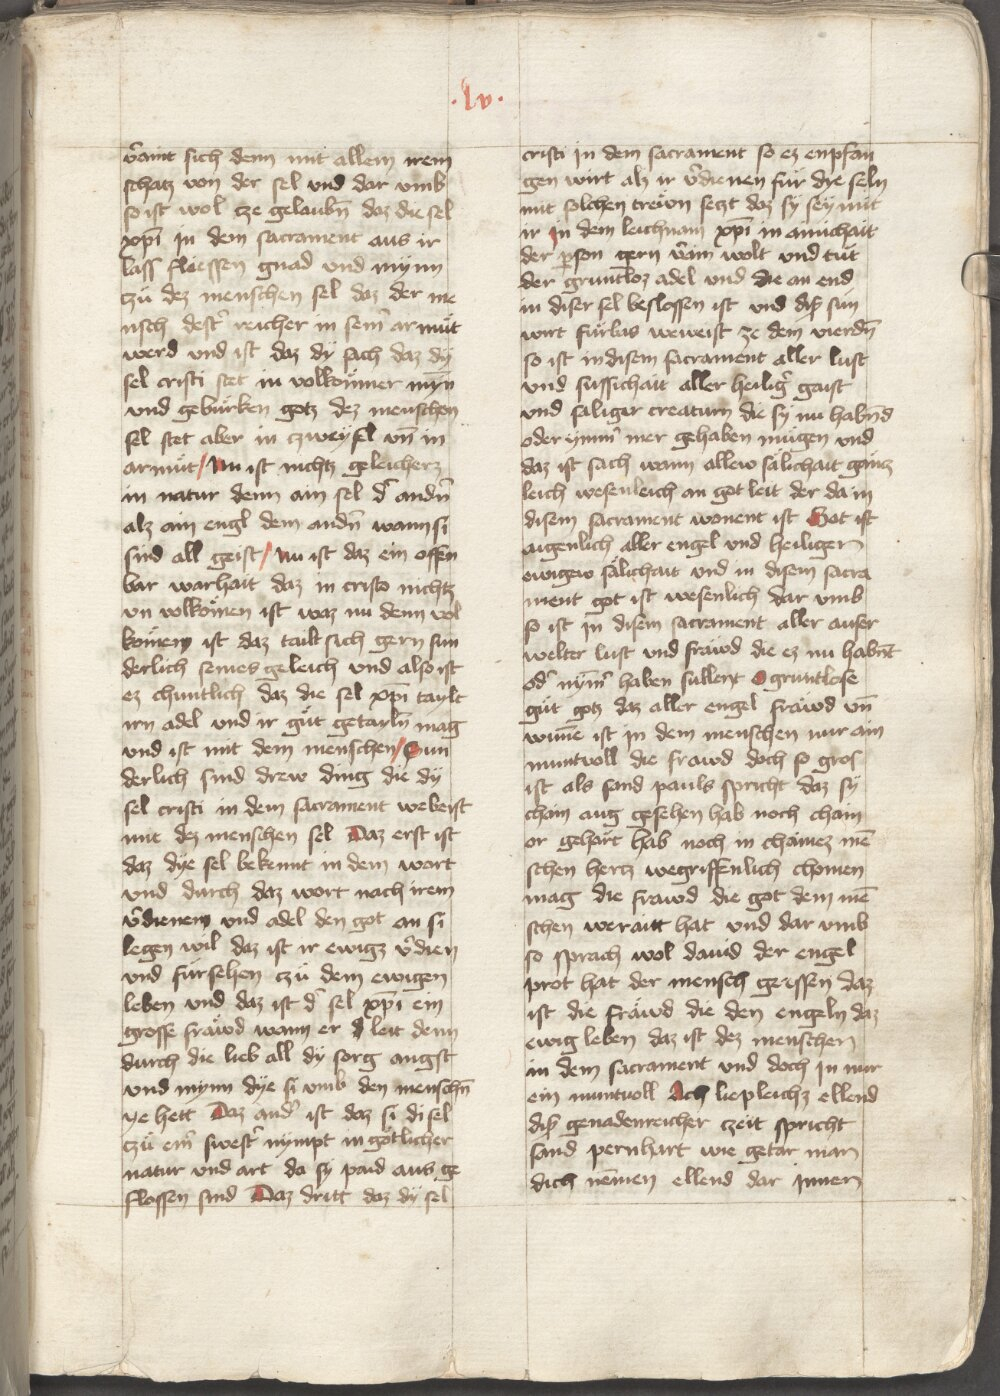 ·lv·
v̄aint sich denn mit allem irem
schatz von der sel vnd dar vmb
so ist wol cze gelaubn̄ daz die sel
xp̄i in dem sacrament aus ir
lass fliessen gnad vnd mynn
czü dez menschen sel daz der me
nsch dest̄ reicher in sem̄ armüt
werd vnd ist daz dy sach daz dy
sel cristi stet in volkom̄ner myn̄
vnd gebürken gotz dez menschen
sel stet aber in czweyfel vn̄ in
armüt / Nu ist nichtz geleicherz
in natur denn ain sel d̄ andn̄
alz ain engl dem andn̄ wann si
sind all geist / Nu ist daz ein offen
bar warhait daz in cristo nichtz
vn volkom̄en ist waz nu denn vol
kom̄en ist daz tailt sich gern sun
derlich seines geleich vnd also ist
ez chuntlich daz die sel xp̄i taylt
irn adel vnd ir güt getayln̄ mag
vnd ist mit dem menschen / Sun
derlich sind drew ding die dy
sel cristi in dem sacrament weberst
mit dez menschen sel Daz erst ist
daz dye sel bekennt in dem wort
vnd durch daz wort nach irem
v̄dienem vnd adel den got an si
legen wil daz ist ir ewigz v̄dien
vnd fürsehen czü dem ewigen
leben vnd daz ist d̄ sel xp̄i ein
grosse fräwd wann er leit denn
durch die lieb all dy sorg angst
vnd mynn dye si vmb den menschn̄
ye hett Daz and̄ ist daz si di sel
czü em̄ swest̄ nympt in götlicher
natur vnd art da sy paid aus ge
flossen sind Daz dritt daz dy sel
cristi in dem sacrament so ez enpfan
gen wirt alz ir v̄dienen für die seln
mit solchen trewn setzt daz sy sey mit
ir in dem leichnam xp̄i in ainichait
der p̄son gern v̄ain wolt vnd tüt
der gruntloz adel vnd die an end
in diser sel beslossen ist vnd diß sun
wirt fürbas weweist ze dem vierdn̄
so ist in disem sacrament aller lust
vnd süssichait aller heiliḡ gaist
vnd saliger creaturn die sy nu habn̄d
oder ymm̄ mer gehaben mügen vnd
daz ist sach wann allew sälichait gäncz
leich wesenleich an got leit der da in
disem sacrament wonent ist Got ist
aigenlich aller engel vnd heiligen
ewigew sälichait vnd in disem sacra
ment got ist wesenlich dar vmb
so ist in disem sacrament aller auser
welter lust vnd fräwd die ez nu habn̄t
od̄ nym̄ haben sullent O gruntlose
güt gotz daz aller engel fräwd vn̄
wun̄e ist in dem menschen nur ain
muntvoll die frawd doch so gros
ist als sand pauls spricht daz sy
chain aug gesehen hab noch chain
or gehört hab noch in chainez mē
schen hercz wegriffenlich chomen
mag die frawd die got dem mē
schen werait hat vnd dar vmb
so sprach wol dauid der engel
prot hat der mensch geessen daz
ist die fräwd die den engeln daz
ewig leben daz ist dez menschen
in dem sacrament vnd doch in nur
ein muntvoll Ach liepleichz ellend
diß genadenreicher czeit spricht
sand pernhart wie getar man
dich nēmen ellend dar Innen